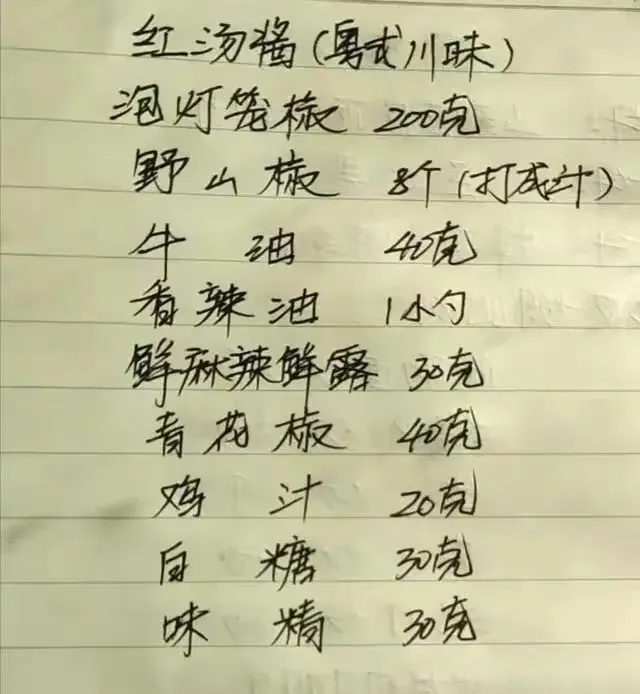 红汤酱(粤式川味)
泡灯笼椒 200克
野山椒 8个(打成汁)
牛油 40克
香辣油 1小勺
鲜麻辣鲜露 30克
青花椒 40克
鸡汁 20克
白糖 30克
味精 30克